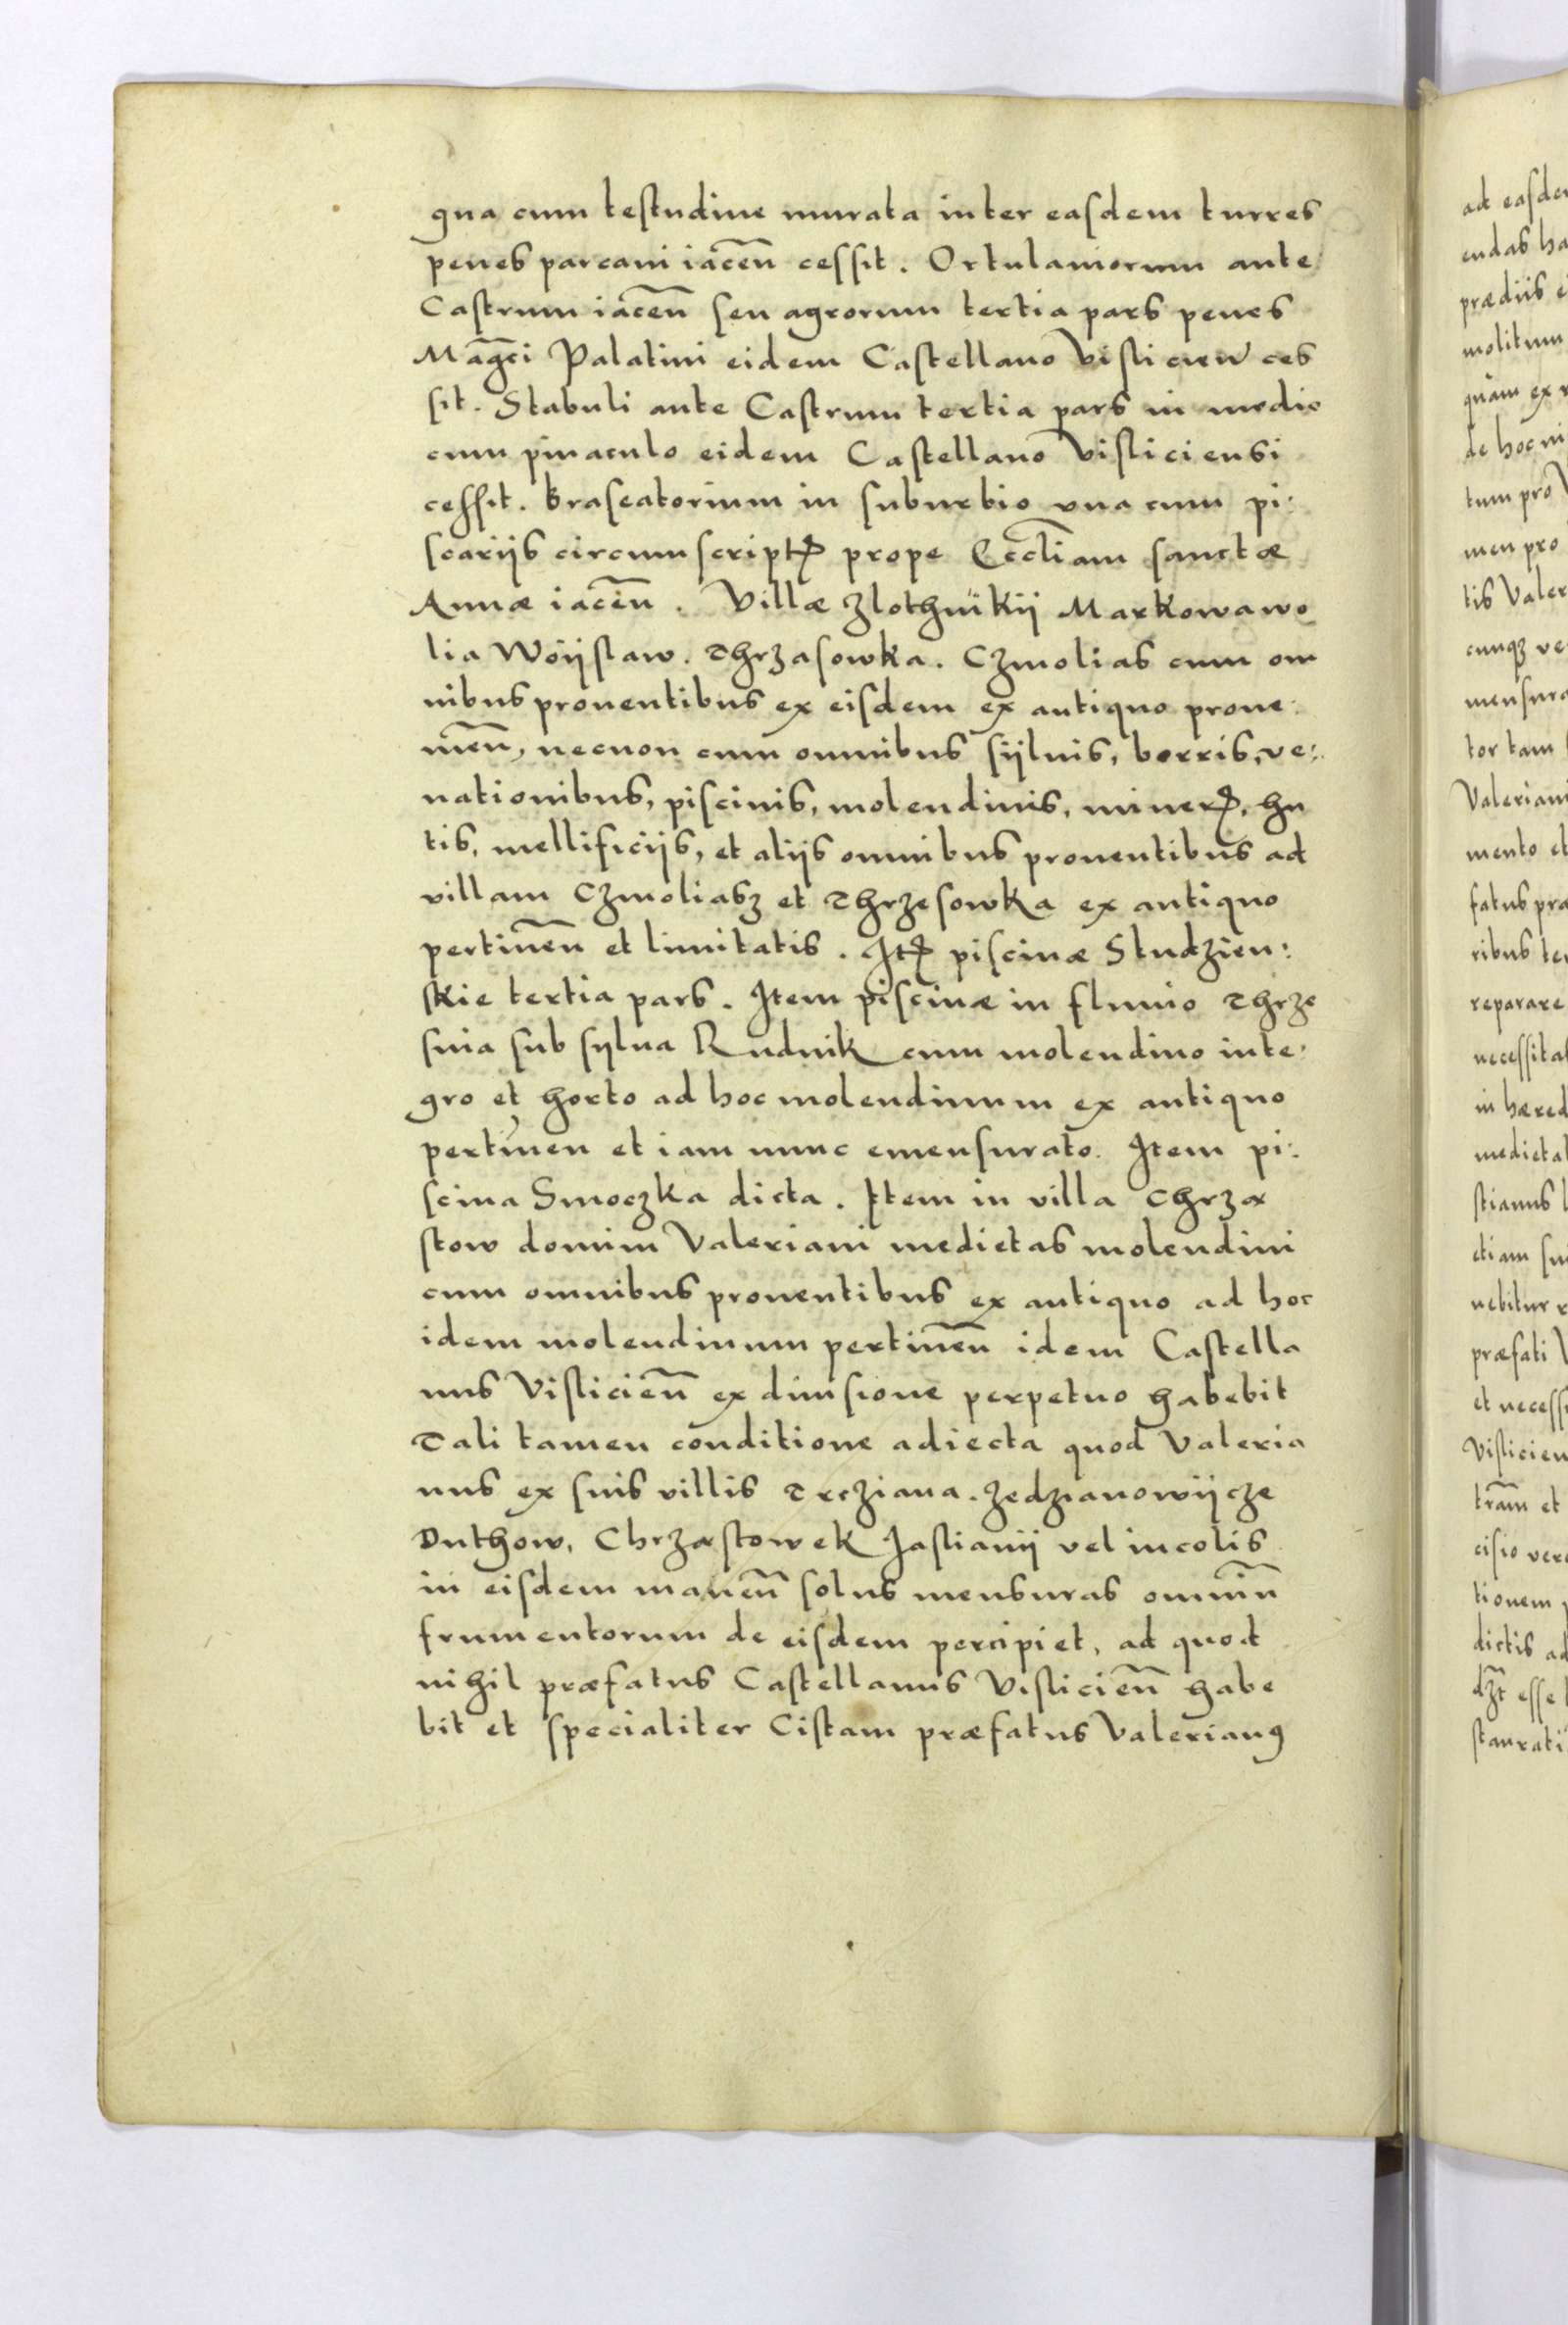 gna cum testudine murata inter easdem turres
penes parcani iaceñ cessit. Ortulaniorum ante
Castrum iaceñ seu agrorum tertia pars penes
Mag̃ci Palatini eidem Castellano Vislicieñ ces
sit. Stabuli ante Castrum tertia pars in medio
cum pinaculo eidem Castellano Visliciensi
cessit. Braseatorium in suburbio vna cum pi:
scariis circumscriptꝭ prope Eccl̃iam sanctæ
Annæ iaceñ. Villæ Zlothnikÿ Markowawo
lia Woÿslaw. Thrzasowka. Czmolias cum om
nibus prouentibus ex eisdem ex antiquo proue:
nieñ, necnon cum omnibus sÿluis, borris, ve:
nationibus, piscinis, molendinis, minerꝭ, hu
tis, mellificÿs, et alÿs omnibus prouentibus ad
villam Czmoliasz et Thrzesowka ex antiquo
pertineñ et limitatis. Itꝭ piscinæ Studzien:
skie tertia pars. Item piscinæ in fluuio Thrze
snia sub sÿlua Rudnik cum molendino inte:
gro et horto ad hoc molendinum ex antiquo
pertineñ et iam nunc emensurato. Item pi:
scina Smoczka dicta. Item in villa Chrzą
stow domini Valeriani medietas molendini
cum omnibus prouentibus ex antiquo ad hoc
idem molendinum pertineñ idem Castella
nus Vislicieñ ex diuisione perpetuo habebit
Tali tamen conditione adiecta quod Valeria
nus ex suis villis Trcziana. Zedzianowÿcze
Duthow, Chrząstowek Jaslianÿ vel incolis
in eisdem maneñ solus mensuras omniũ
frumentorum de eisdem percipiet, ad quod
nihil præfatus Castellanus Vislicieñ habe
bit et specialiter Cistam præfatus Valerianꝰ
ad easdem
endas ha
prædiis e
molitum
quam ex
de hoc ni
tum pro
men pro
tis Valer
cunqꝫ ve
mensura
tor tam
Valeriani
mento et
fatus præ
ribus ter
reparare
necessita
in hæred
medieta
stianus
etiam su
nebitur
præfati
et necess
Vislicien
tram̃ et
cisio vero
tionem
dictis ad
esse
staurati